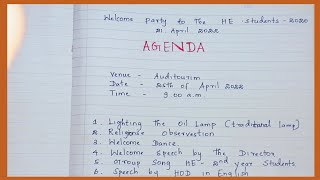 Welcome Party to The HE - students - 2020
21 April 2022
AGENDA
Venue - Auditourim
Date - 26th of April 2022
Time - 9 00 a.m
1. Lighting The Oil Lamp (traditural lamp)
2. Religeose Observestion
3. Welcome Dance.
4. Welcome Speech by The Director
5. Group Song HE - 2nd year Students
6. Speech by HOD in English